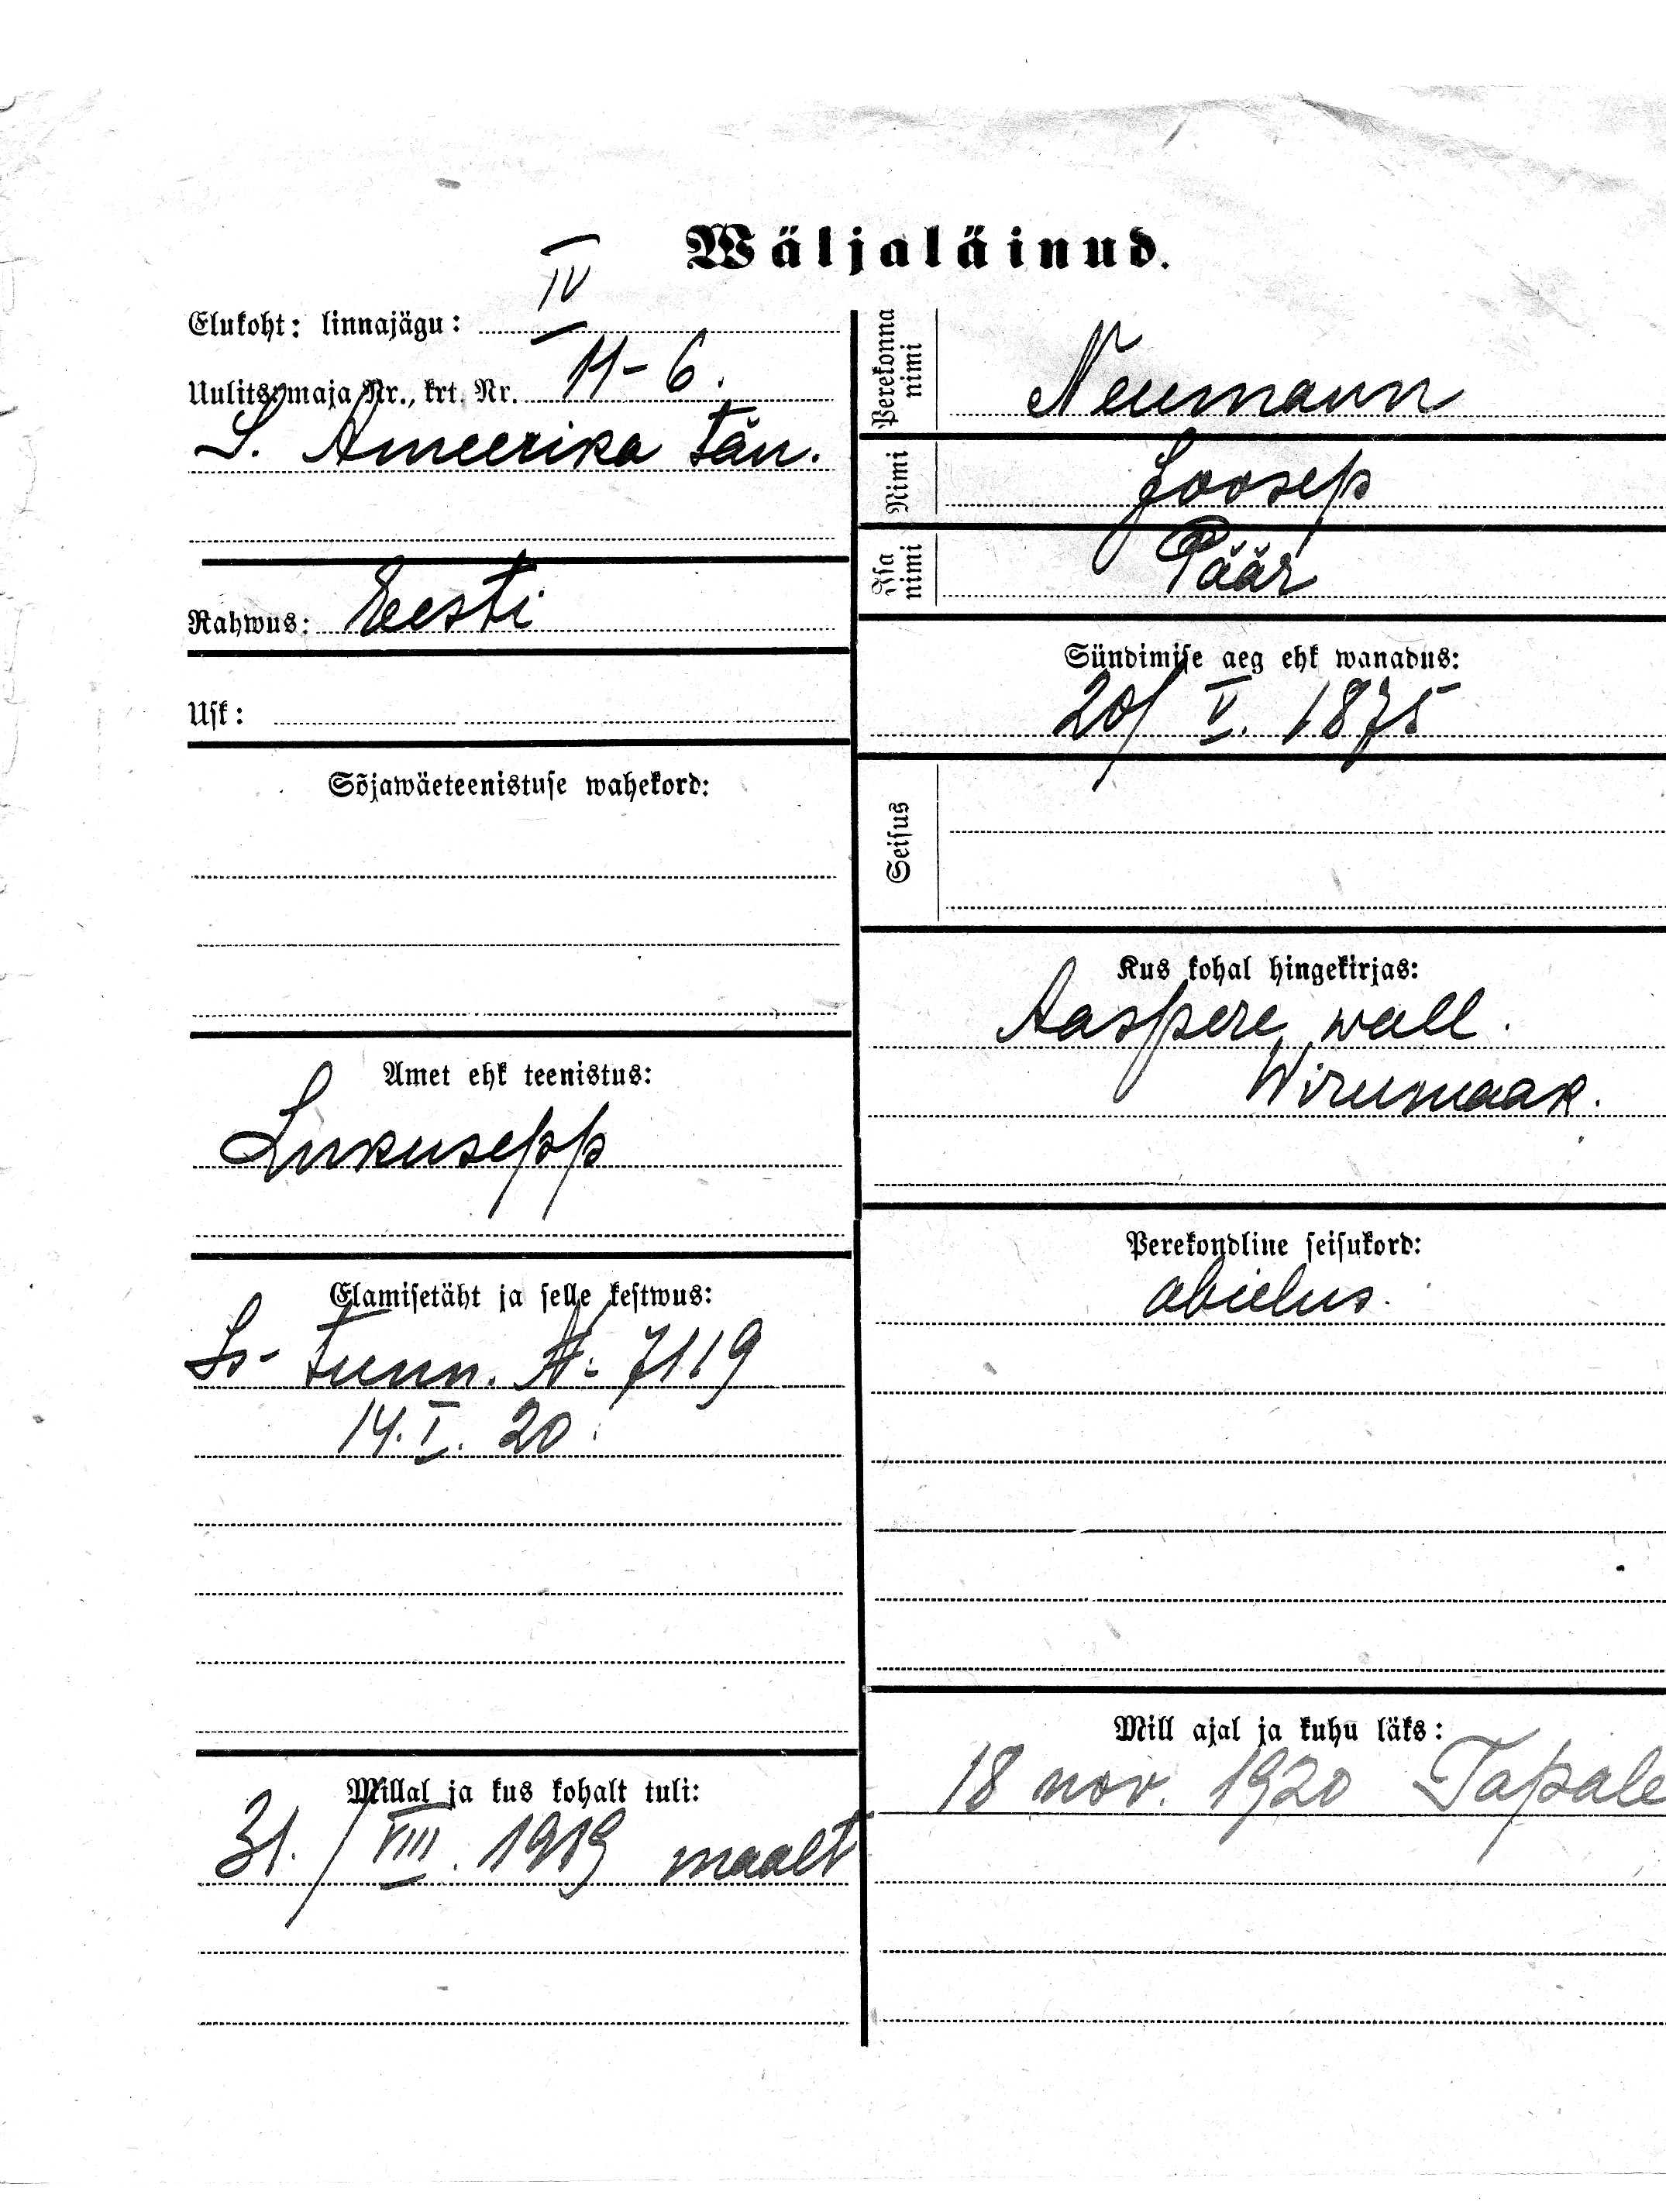 Wäljaläinud.
Elukoht: linnajägu: IV
Uulits, maja Nr., krt. Nr. 11-6.
S. Ameerika tän.
Rahwus: Eesti
Usk:
Sõjawäeteenistuse wahekord:
Amet ehk teenistus:
Lukusepp
Elamisetäht ja selle kestwus:
tunn. №: 7119
14. I. 20.
Millal ja kus kohalt tuli:
31. / VIII. 1919 maalt
Perekonna nimi Neumann
Nimi Joosep
Isa nimi Päär
Sündimise aeg ehk wanadus:
20/ V. 1875
Seisus
Kus kohal hingekirjas:
Aaspere wall.
Wirumaak.
Perekondline seisukord:
abielus.
Mill ajal ja kuhu läks:
18 nov. 1920 Tapale